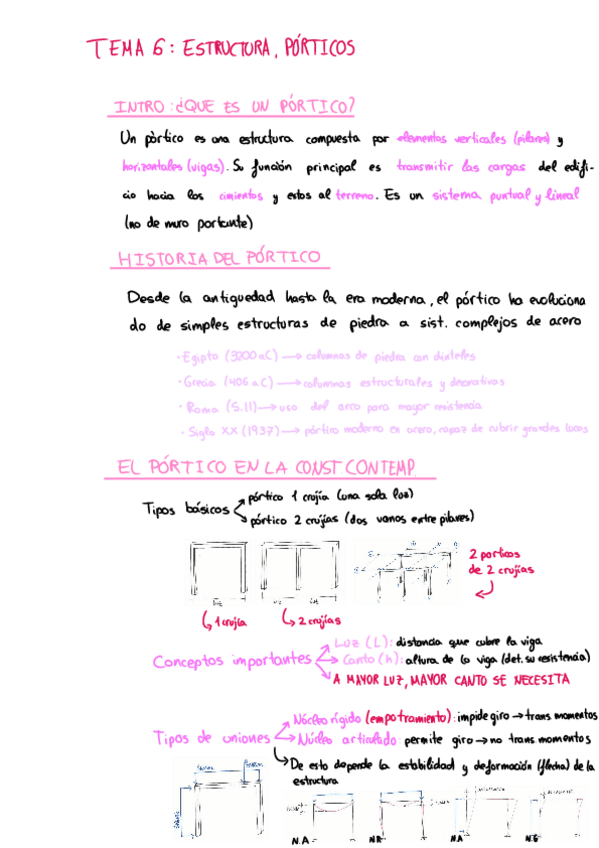 TEMA 6: ESTRUCTURA, PÓRTICOS
INTRO: ¿QUE ES UN PÓRTICO?
Un pòrtico es una estructura compuesta por elementos verticales (pilares) y
horizontales (vigas). Su función principal es transmitir las cargas del edifi-
cio hacia los cimientos y estos al terreno. Es un sistema puntual y lineal
(no de muro portante)
HISTORIA DEL PÓRTICO
Desde la antiguedad hasta la era moderna, el pórtico ha evoluciona
do de simples estructuras de piedra a sist. complejos de acero
· Egipto (3200 aC) → columnas de piedra con dinteles
· Grecia (406 aC) → columnas estructurales y decorativas
· Roma (S.II) → uso del arco para mayor resistencia
· Siglo XX (1937) → pórtico moderno en acero, capaz de cubrir grandes luces
EL PÓRTICO EN LA CONST CONTEMP.
Tipos básicos
pórtico 1 crujía (una sola luz)
pórtico 2 crujías (dos vanos entre pilares)
2 porticos
de 2 crujías
Luz
Luz
Luz
1 crujía
2 crujías
Conceptos importantes
Luz (L): distancia que cubre la viga
Canto (h): altura de la viga (det. su resistencia)
A MAYOR LUZ, MAYOR CANTO SE NECESITA
Tipos de uniones
Núcleo rígido (empotramiento): impide giro → trans momentos
Núcleo articulado: permite giro → no trans momentos
De esto depende la estabilidad y deformación (flecha) de la
estructura
N.A
N.R
N.A
N.R